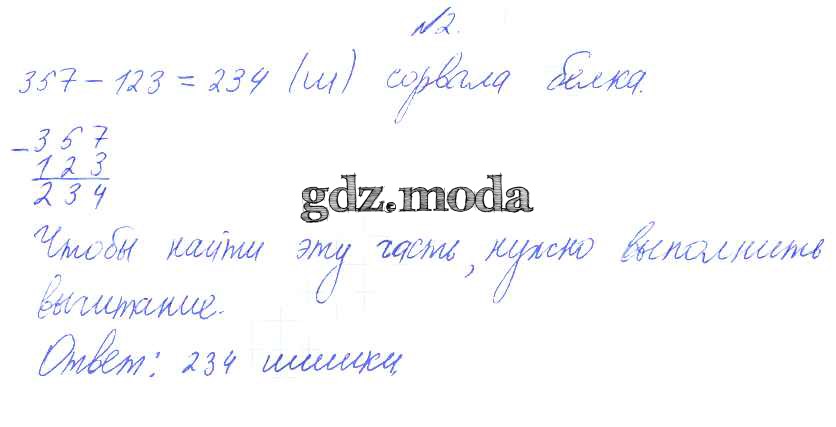 №2.
357 – 123 = 234 (ш) сорвала белка.
– 357
123
234
gdz.moda
Чтобы найти эту часть, нужно выполнить
вычитание.
Ответ: 234 шишки.